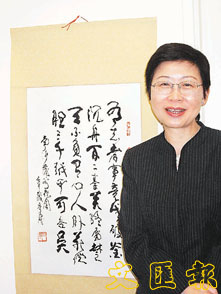 有志者事竟成破釜
沉舟百二秦關終屬楚
天不負苦心人卧薪嘗
膽三千越甲可吞吳
文匯報